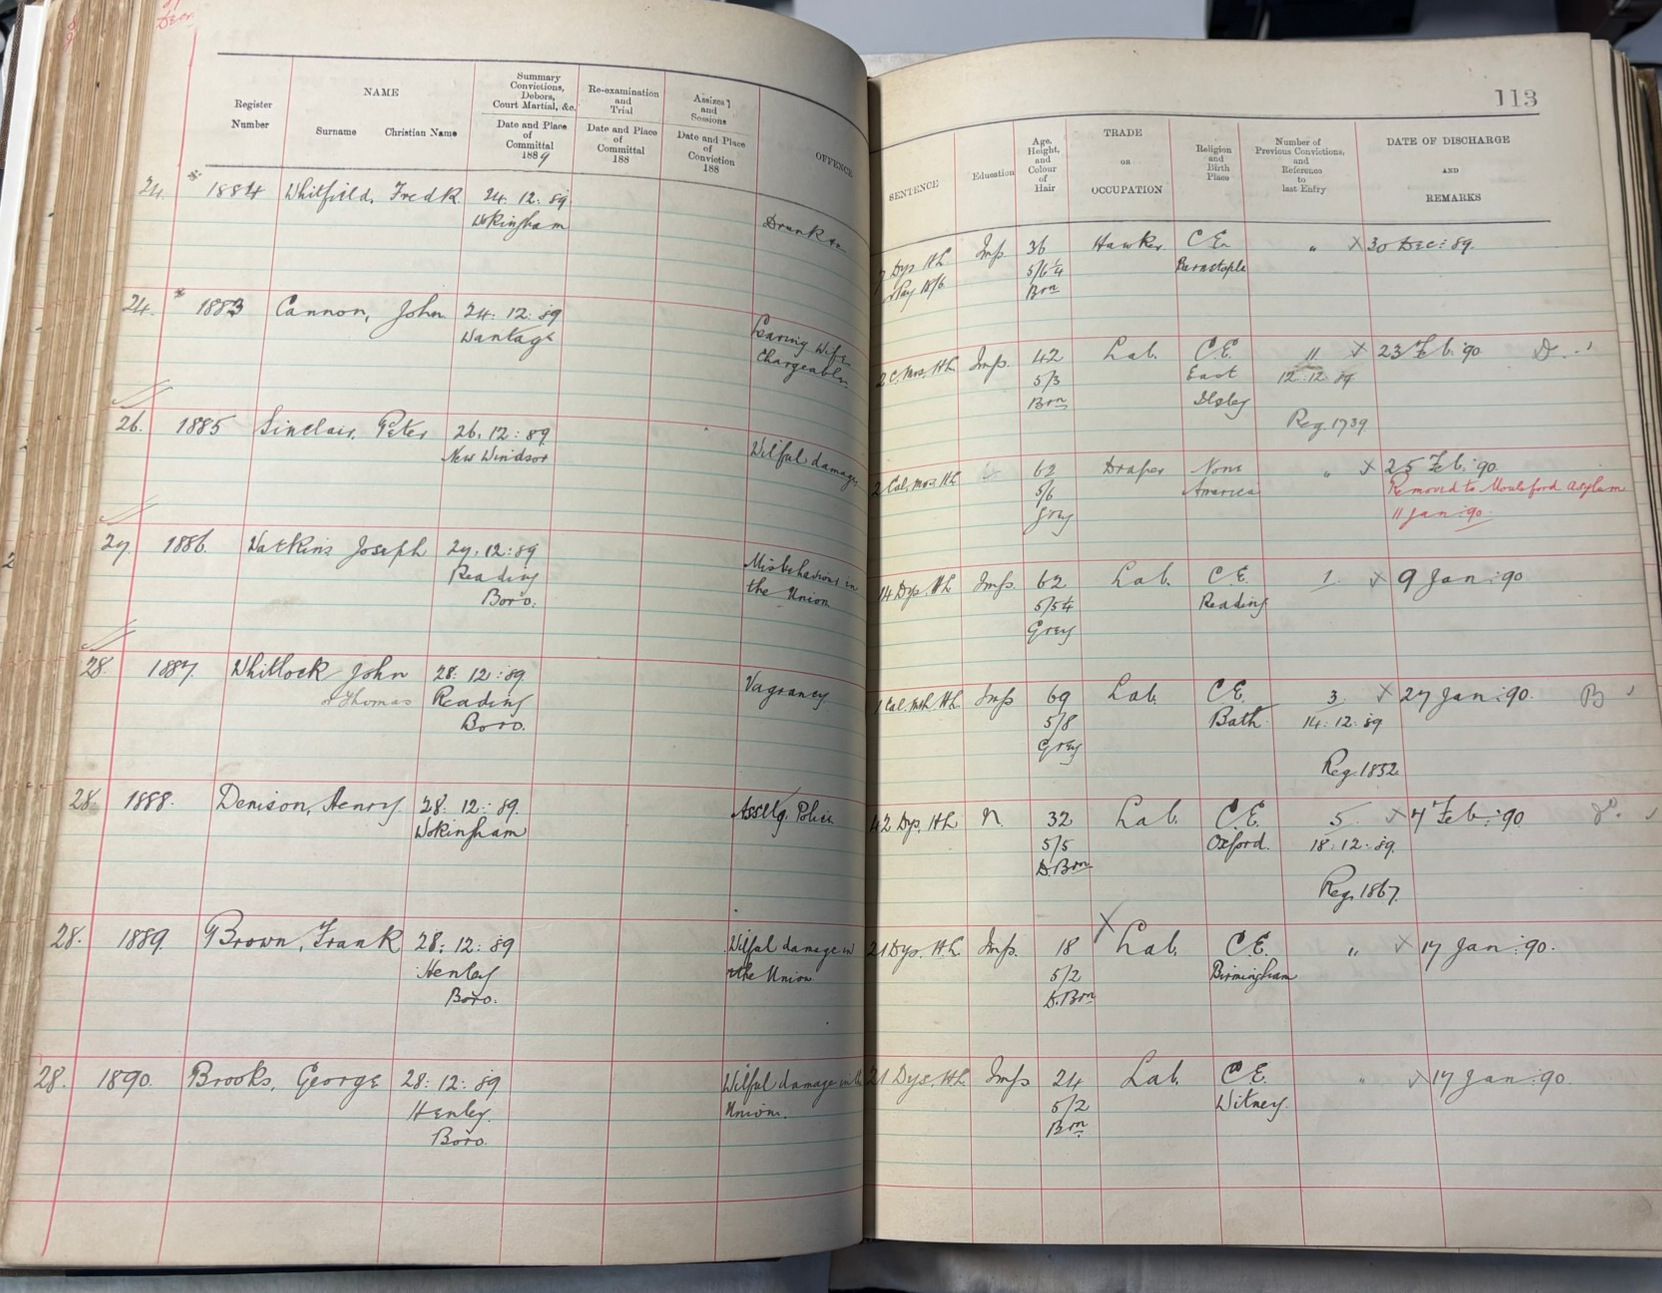 113
Register Number
NAME
Surname Christian Name
Summary Convictions, Debors, Court Martial, &c.
Date and Place of Committal 1889
Re-examination and Trial
Date and Place of Committal 188
Assizes and Sessions
Date and Place of Conviction 188
OFFENCE
SENTENCE
Education
Age, Height, and Colour of Hair
TRADE OR OCCUPATION
Religion and Birth Place
Number of Previous Convictions, and Reference to last Entry
DATE OF DISCHARGE AND REMARKS
24. 1884 Whitfield, Fredk 24. 12: 89 Drunk &c 7 Dys HL Imp. 36 Hawker C.E. " X 30 Dec: 89.
Wokingham 5/6¼ Barnstaple
Brn
24. 1883 Cannon, John 24: 12: 89 Leaving Wife 2 C. Mos. HL Imp. 42 Lab. C.E. 11 X 23 Feb: 90 D.
Wantage Chargeable 5/3 East 12: 12: 89
Brn Ilsley Reg. 1739
26. 1885 Sinclair, Peter 26. 12: 89 Wilful damage 2 Cal. Mos HL 62 Draper None " X 25 Feb: 90.
New Windsor 5/6 America Removed to Moulsford Asylum
Grey 11 Jan: 90.
27. 1886. Watkins Joseph 27. 12: 89 Misbehaviour in 14 Dys. HL Imp. 62 Lab. C.E. 1. X 9 Jan: 90
Reading the Union 5/5¼ Reading
Boro. Grey
28. 1887. Whitlock John 28. 12: 89 Vagrancy 1 Cal. Mth HL Imp 69 Lab. C.E. 3. X 27 Jan: 90. B
or Thomas Reading 5/8 Bath. 14: 12: 89
Boro. Grey Reg. 1852
28. 1888. Denison, Henry 28. 12: 89. Asstg. Police 42 Dys. HL N. 32 Lab. C.E. 5. X 7 Feb: 90
Wokingham 5/5 Oxford. 18: 12: 89.
D. Brn Reg. 1867.
28. 1889. Brown, Frank 28: 12: 89 Wilful damage in 21 Dys. HL Imp. 18 X Lab. C.E. " X 17 Jan: 90.
Henley the Union 5/2 Birmingham
Boro. D. Brn
28. 1890. Brooks, George 28: 12: 89 Wilful damage in the 21 Dys. HL Imp 24 Lab. C.E. " X 17 Jan: 90.
Henley Union. 5/2 Witney.
Boro. Brn